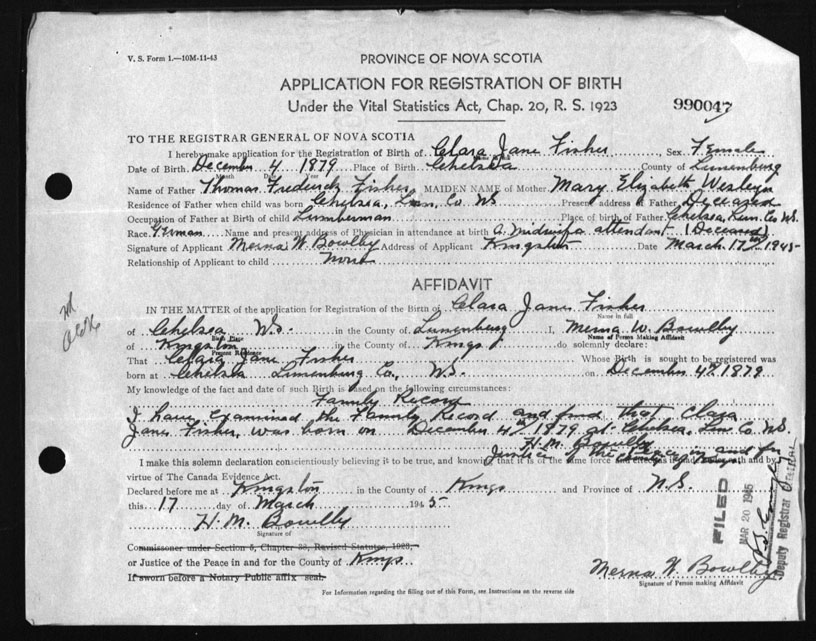 V. S. Form 1.—10M-11-43
PROVINCE OF NOVA SCOTIA
APPLICATION FOR REGISTRATION OF BIRTH
Under the Vital Statistics Act, Chap. 20, R. S. 1923
990047
TO THE REGISTRAR GENERAL OF NOVA SCOTIA
I hereby make application for the Registration of Birth of Clara Jane Fisher, Sex Female
Date of Birth December 4 1879 Place of Birth Chelsea County of Lunenburg
Month Day
Name of Father Thomas Frederick Fisher MAIDEN NAME of Mother Mary Elizabeth
Residence of Father when child was born Chelsea, Lun. Co. NS Present address of Father Deceased
Occupation of Father at Birth of child Lumberman Place of birth of Father Chelsea, Lun. Co. NS.
Race German Name and present address of Physician in attendance at birth A. Midwife attendant (Deceased)
Signature of Applicant Merna W Bowlby Address of Applicant Kingston Date March 17th 1945
Relationship of Applicant to child None
AFFIDAVIT
IN THE MATTER of the application for Registration of the Birth of Clara Jane Fisher
Name in full
of Chelsea N.S. in the County of Lunenburg I, Merna W. Bowlby
Birth Place Name of Person Making Affidavit
of Kingston of County of Kings do solemnly declare:
Present Residence
That Clara Jane Fisher Whose Birth is sought to be registered was
born at Chelsea Lunenburg Co. NS. on December 4th 1879
My knowledge of the fact and date of such Birth is based on the following circumstances:
Family Record
I have examined the Family Record and find that Clara
Jane Fisher, was born on December 4th 1879 at Chelsea, Lun. Co. NS.
H. M. Bowlby
Justice of the Peace in and for
I make this solemn declaration conscientiously believing it to be true, and knowing that it is of the same force and effect as if made under oath and by
virtue of The Canada Evidence Act.
Declared before me at Kingston in the County of Kings and Province of N.S.
this 17 day of March 1945
H. M. Bowlby
Signature of
Commissioner under Section 5, Chapter 38, Revised Statutes, 1923,
or Justice of the Peace in and for the County of Kings
If sworn before a Notary Public affix seal
Merna W. Bowlby
Signature of Person making Affidavit
For Information regarding the filling out of this Form, see Instructions on the reverse side
FILED
MAR 20 1945
Deputy Registrar